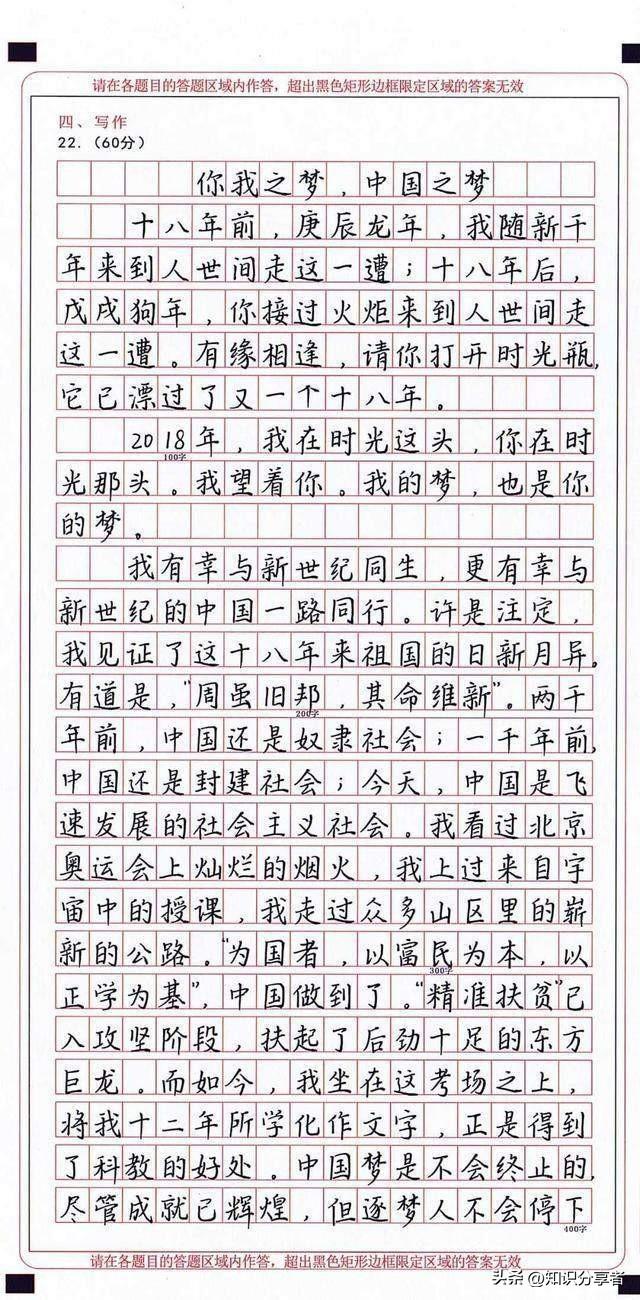 请在各题目的答题区域内作答，超出黑色矩形边框限定区域的答案无效
四、写作
22.（60分）
你我之梦，中国之梦
十八年前，庚辰龙年，我随新千
年来到人世间走这一遭；十八年后，
戊戌狗年，你接过火炬来到人世间走
这一遭。有缘相逢，请你打开时光瓶，
它已漂过了又一个十八年。
2018年，我在时光这头，你在时
100字
光那头。我望着你。我的梦，也是你
的梦。
我有幸与新世纪同生，更有幸与
新世纪的中国一路同行。许是注定，
我见证了这十八年来祖国的日新月异。
有道是，“周虽旧邦，其命维新”。两千
200字
年前，中国还是奴隶社会；一千年前，
中国还是封建社会；今天，中国是飞
速发展的社会主义社会。我看过北京
奥运会上灿烂的烟火，我上过来自宇
宙中的授课，我走过众多山区里的崭
新的公路。“为国者，以富民为本，以
300字
正学为基”，中国做到了。“精准扶贫”已
入攻坚阶段，扶起了后劲十足的东方
巨龙。而如今，我坐在这考场之上，
将我十二年所学化作文字，正是得到
了科教的好处。中国梦是不会终止的，
尽管成就已辉煌，但逐梦人不会停下
400字
请在各题目的答题区域内作答，超出黑色矩形边框限定区域的答案无效
头条 @知识分享者